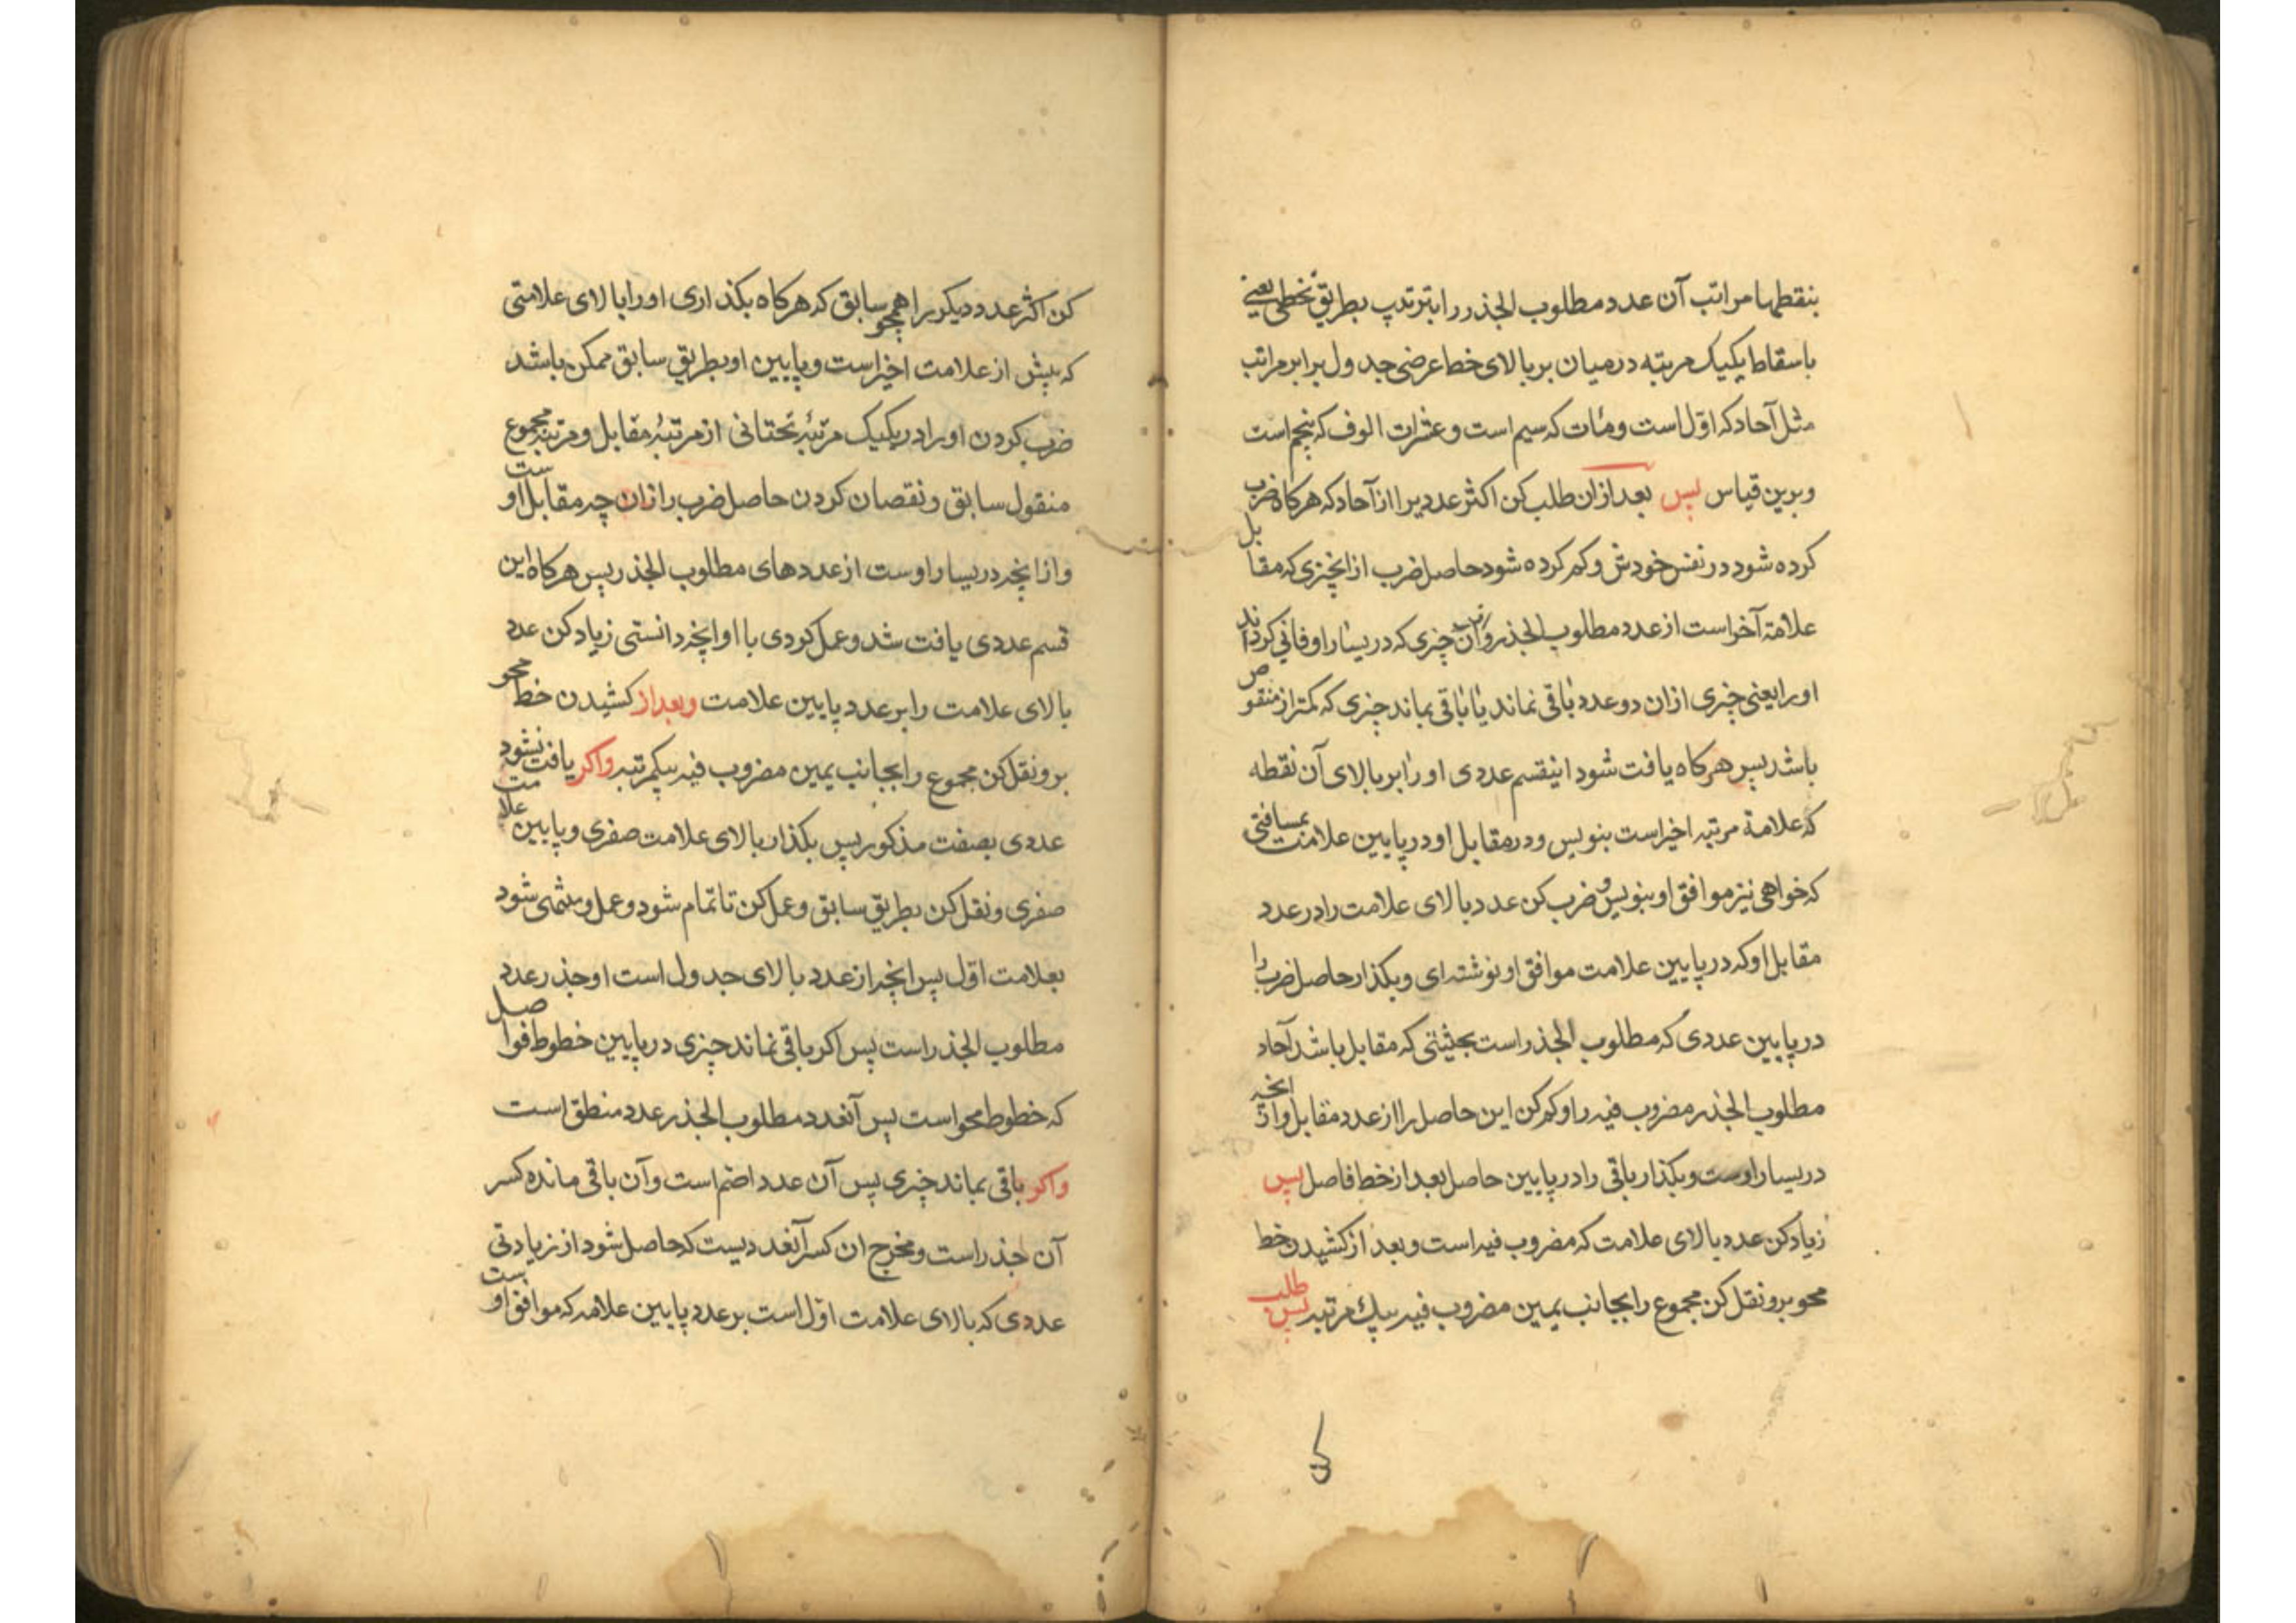 بنقطها مراتب آن عدد مطلوب الجذر را بترتیب بطریق تخطی یعنی
باسقاط یکیک مرتبه در میان بر بالای خط عرضی جدول برابر مراتب
مثل آحاد که اوّل است و مئات که سیم است و عشرات الوف که پنجم است
و برین قیاس پس بعد از ان طلب کن اکثر عددیرا از آحاد که هرکاه ضرب
کرده شود در نفس خودش و کم کرده شود حاصل ضرب از انچیزی که مقابل
علامة آخر است از عدد مطلوب الجذر و از آن چیزی که در یسار او فانی کرداند
او را یعنی چیزی از ان دو عدد باقی نماند یا باقی بماند چیزی که کمتر از منقوص
باشد پس هرکاه یافت شود اینقسم عددی او را بر بالای آن نقطه
که علامة مرتبه اخیر است بنویس و در مقابل او در پایین علامت بمسافتی
که خواهی نیز موافق او بنویس و ضرب کن عدد بالای علامت را در عدد
مقابل او که در پایین علامت موافق او نوشته ای و بکذار حاصل ضرب را
در پایین عددی که مطلوب الجذر است بحیثیتی که مقابل باشد آحاد
مطلوب الجذر مضروب فیه را و کم کن این حاصل را از عدد مقابل و از انچه
در یسار اوست و بکذار باقی را در پایین حاصل بعد از خط فاصل پس
زیاد کن عدد بالای علامت که مضروب فیه است و بعد از کشیدن خط
محو برو نقل کن مجموع را بجانب یمین مضروب فیه بیك مرتبه پس طلب
کن اکثر عدد دیکر را همچو سابق که هرکاه بکذاری او را بالای علامتی
که پیش از علامت اخیر است و پایین او بطریق سابق ممکن باشد
ضرب کردن او را در یکیک مرتبهٔ تحتانی از مرتبهٔ مقابل و مرتبه مجموع
منقول سابق و نقصان کردن حاصل ضرب را از ان چه مقابل اوست
و از انچه در یسار اوست از عددهای مطلوب الجذر پس هرکاه این
قسم عددی یافت شد و عمل کردی با او انچه دانستی زیاد کن عدد
بالای علامت را بر عدد پایین علامت و بعد از کشیدن خط محو
برو نقل کن مجموع را بجانب یمین مضروب فیه بیکمرتبه واکر یافت نشود
عددی بصفت مذکور پس بکذار بالای علامت صفری و پایین علامت
صفری و نقل کن بطریق سابق و عمل کن تا تمام شود و عمل و منتهی شود
بعلامت اوّل پس انچه از عدد بالای جدول است او جذر عدد
مطلوب الجذر است پس اکر باقی نماند چیزی در پایین خطوط فواصل
که خطوط محو است پس آنعدد مطلوب الجذر عدد منطق است
واکر باقی بماند چیزی پس آن عدد اصم است و آن باقی مانده کسر
آن جذر است و مخرج ان کسر آنعددیست که حاصل شود از زیادتی
عددی که بالای علامت اوّل است بر عدد پایین علامه که موافق اوست